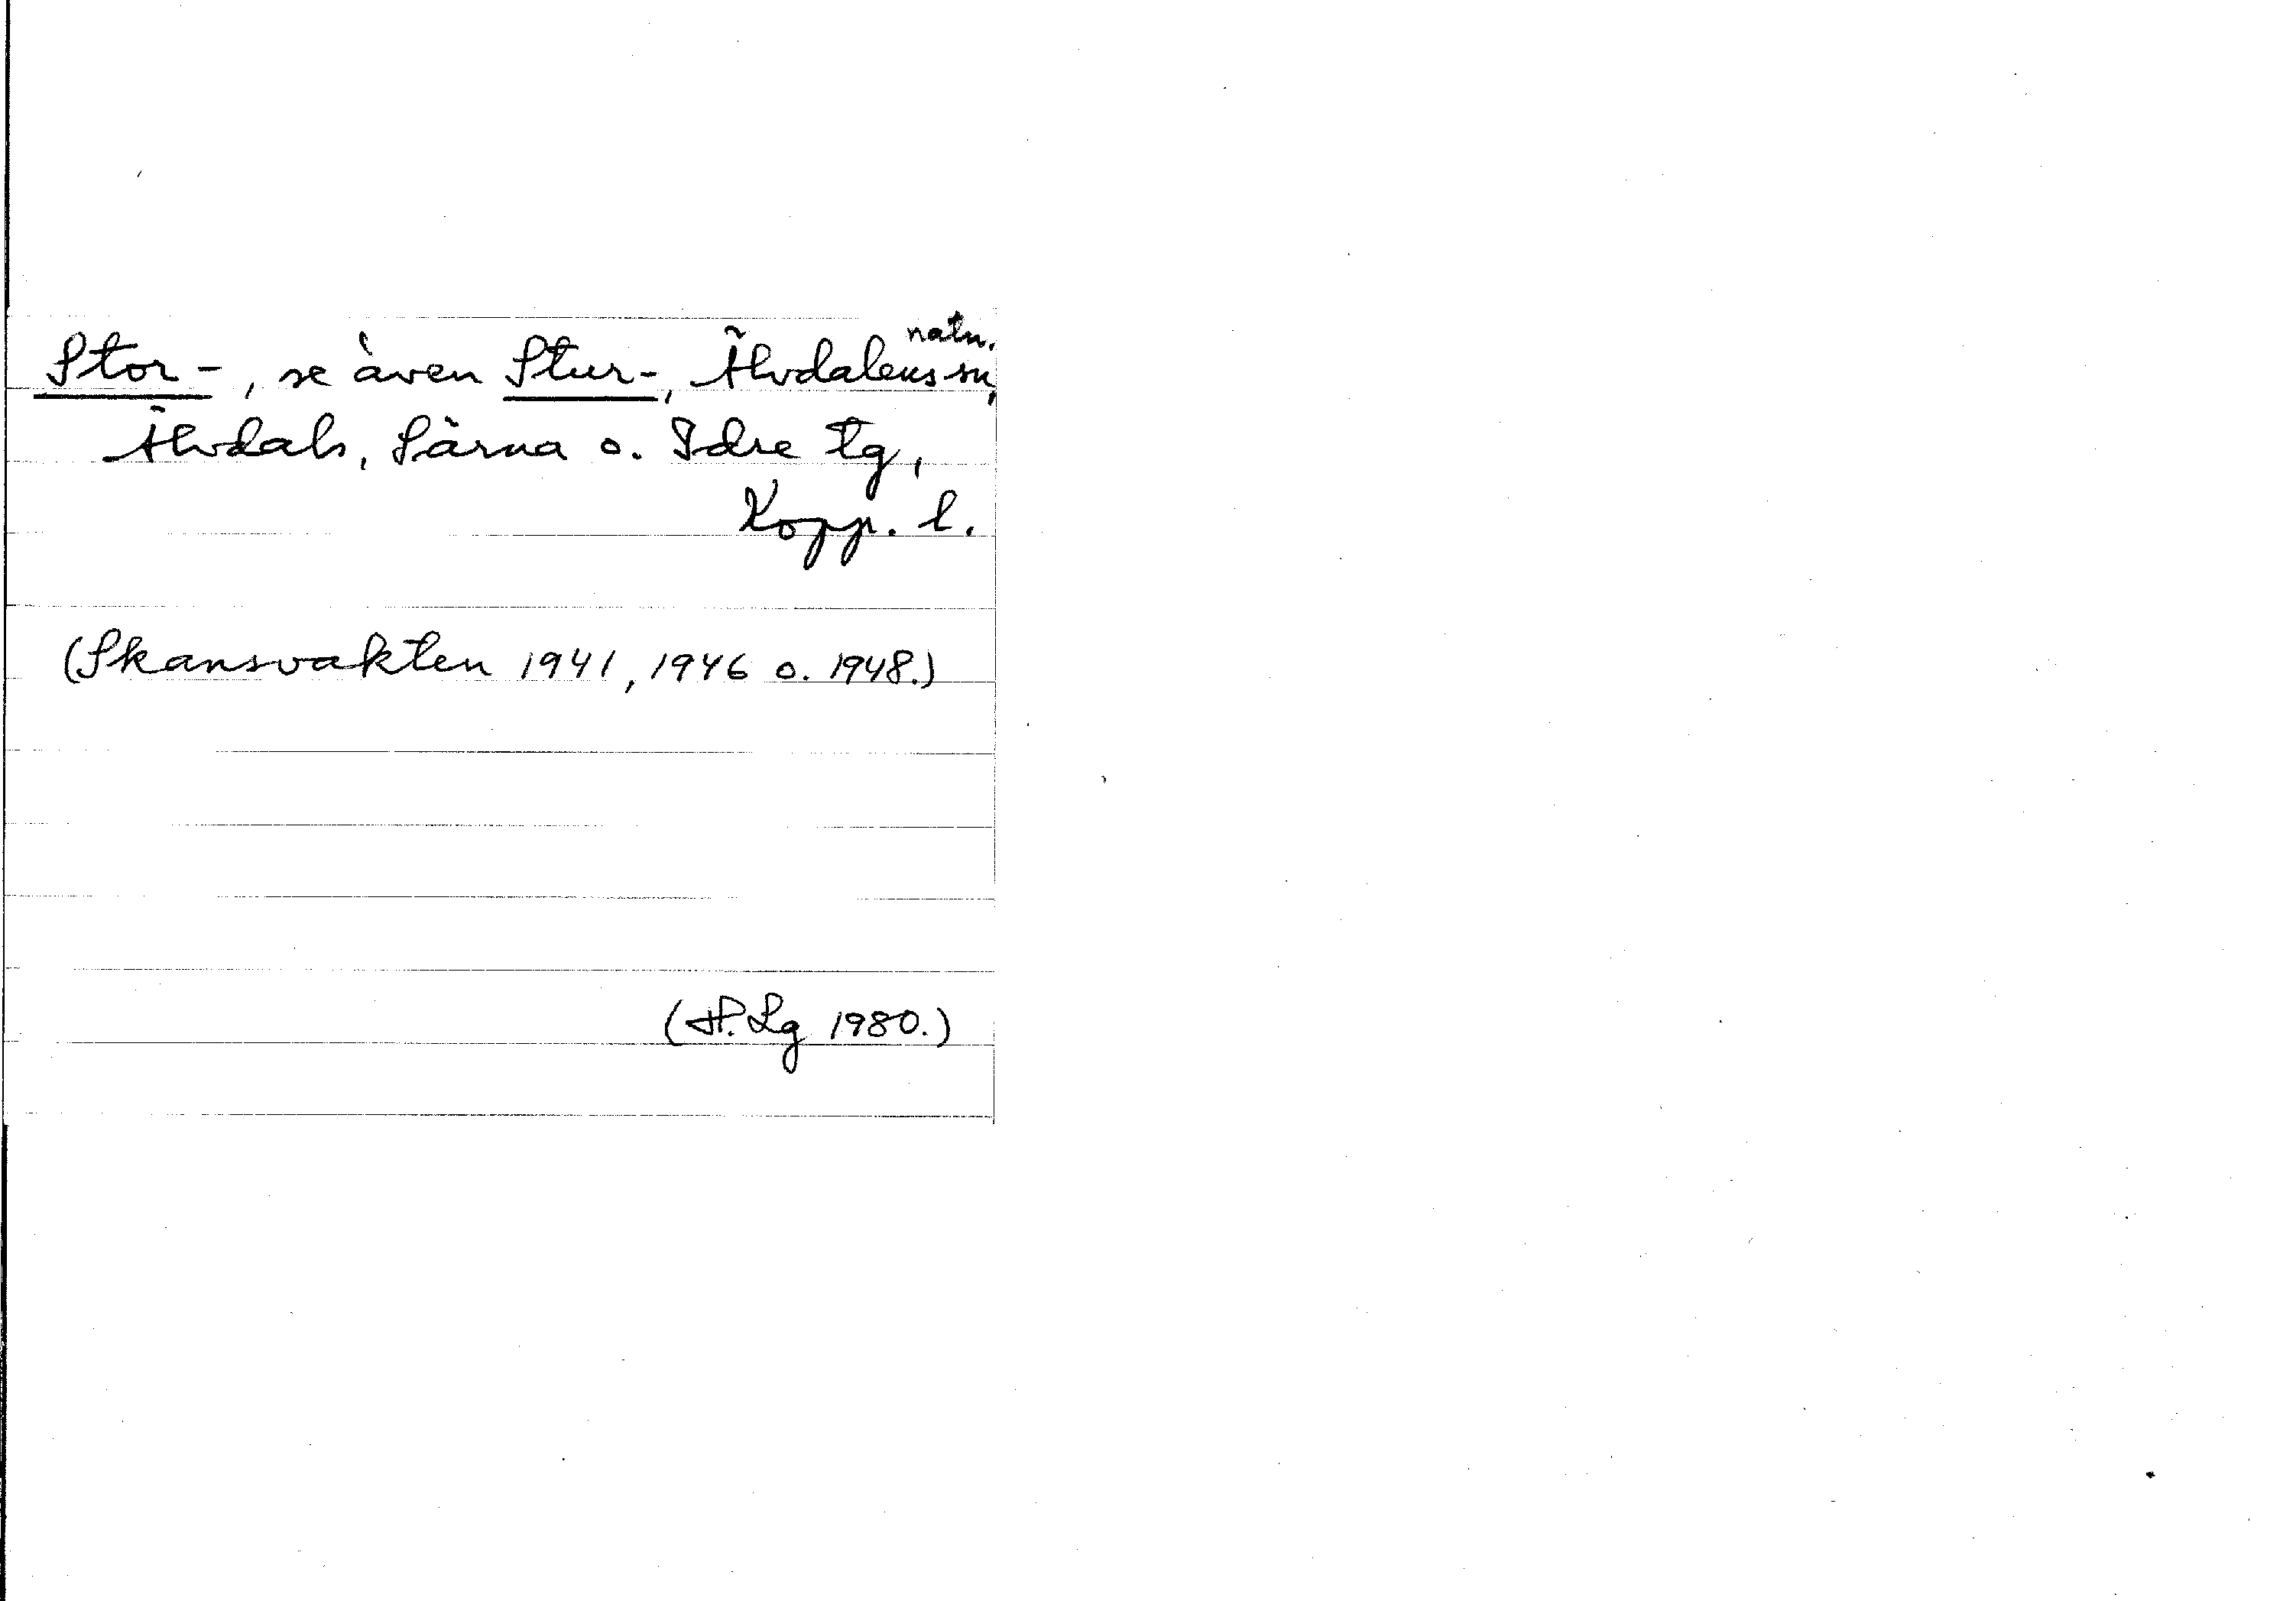 natn.
Stor-, se även Stur-, Älvdalens sn,
Älvdals, Särna o. Idre tg,
Kopp. l.
(Skansvakten 1941, 1946 o. 1948.)
(H. Lg 1980.)